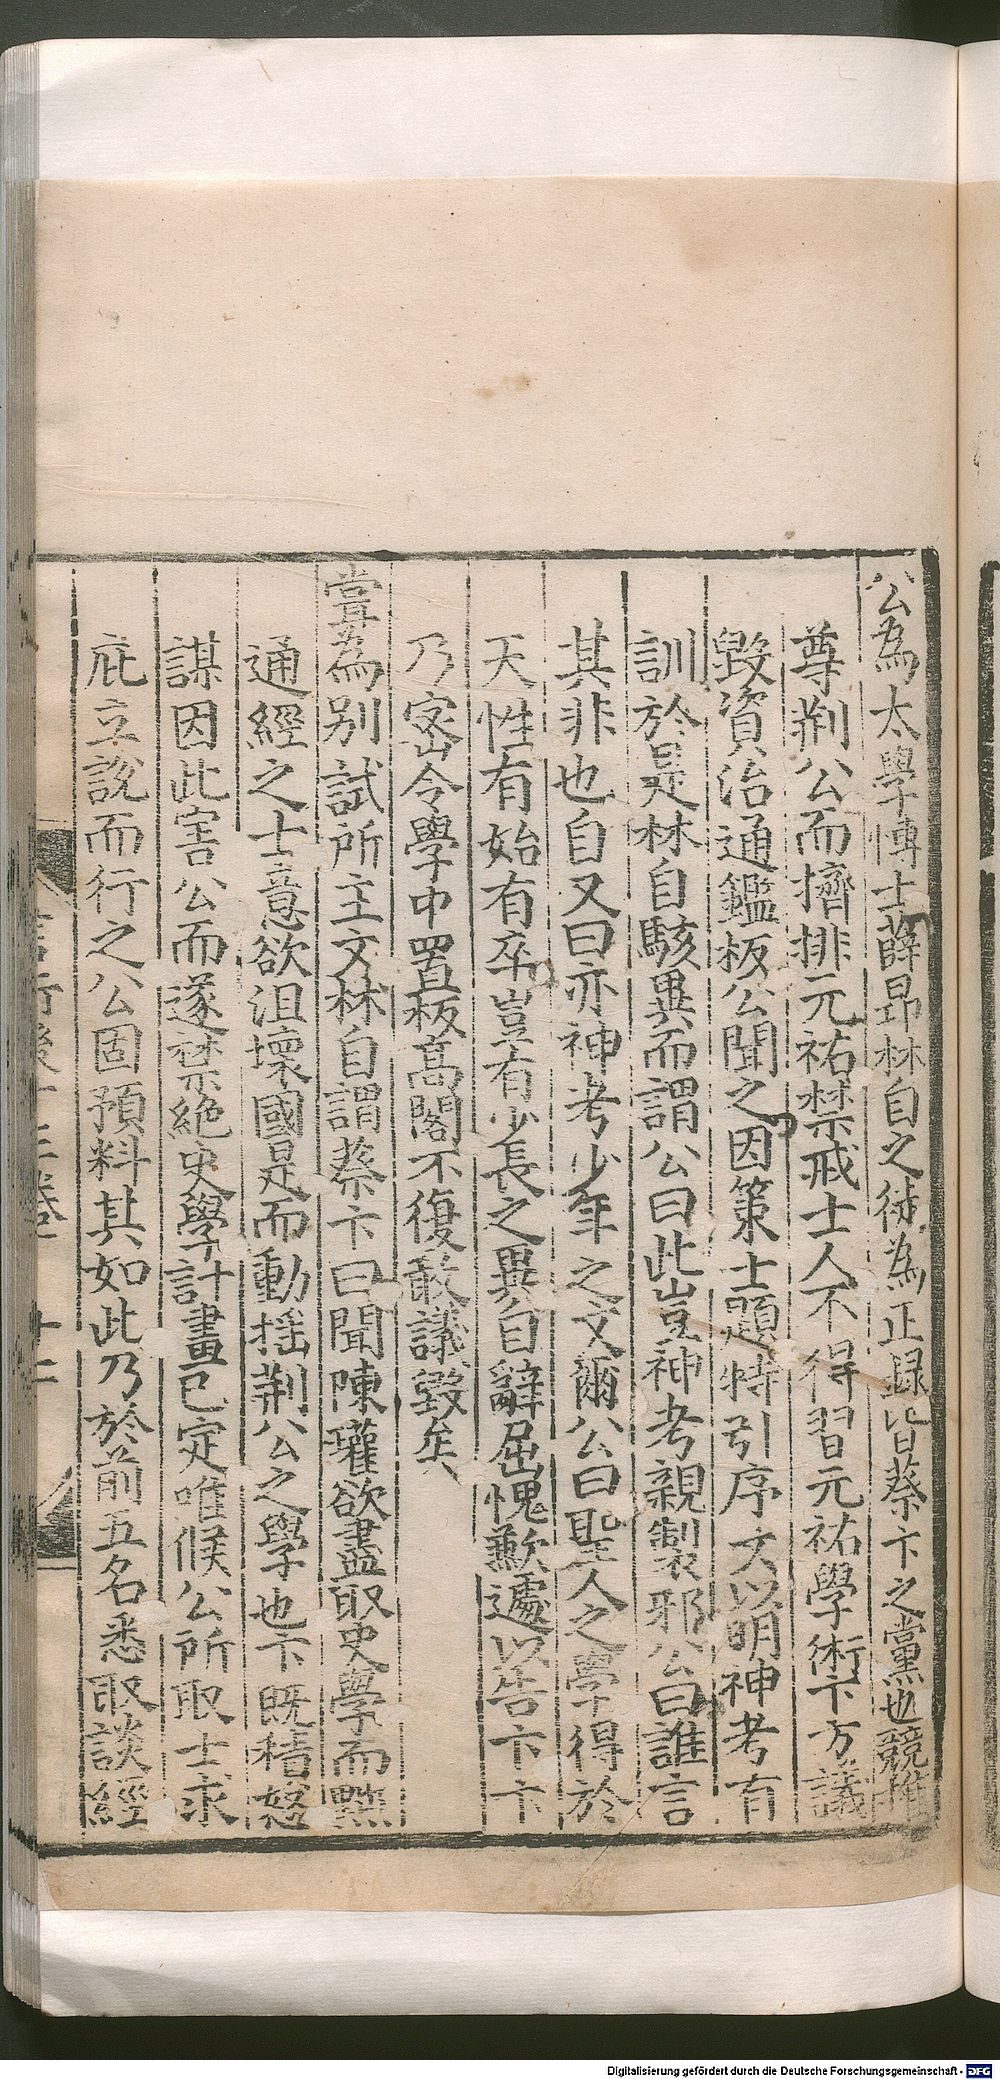 公為太學博士薛昂林自之徒為正錄皆蔡卞之黨也競推
尊荆公而擠排元祐禁戒士人不得習元祐學術卞方議
毀資治通鑑板公聞之因策士題特引序文以明神考有
訓於是林自駭異而謂公曰此豈神考親製邪公曰誰言
其非也自又曰亦神考少年之文爾公曰聖人之學得於
天性有始有卒豈有少長之異自辭屈愧歉遽以告卞卞
乃密令學中置板高閣不復敢議毀矣
嘗為別試所主文林自謂蔡卞曰聞陳瓘欲盡取史學而黜
通經之士意欲沮壞國是而動揺荆公之學也卞既積怒
謀因此害公而遂禁絕史學計畫已定唯候公所取士求
庇立說而行之公固預料其如此乃於前五名悉取談經
言行後 三卷 十二
Digitalisierung gefördert durch die Deutsche Forschungsgemeinschaft - DFG